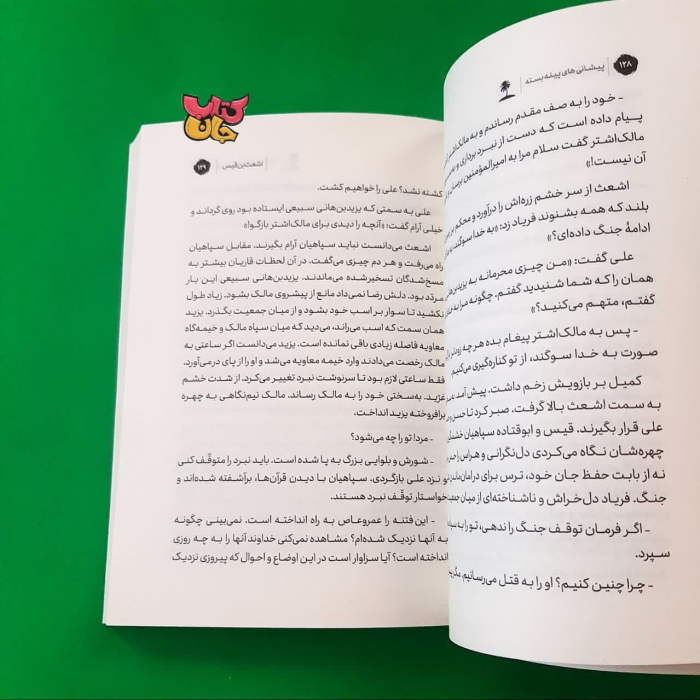 ۱۲۸ پیشانی‌های پینه بسته
- خود را به صف مقدم رساندم و به مالک‌اشتر
پیام داده است که دست از نبرد برداری و به
مالک‌اشتر گفت سلام مرا به امیرالمؤمنین برسان
آن نیست!»
اشعث از سر خشم زره‌اش را درآورد و محکم بر
بلند که همه بشنوند فریاد زد: «به خدا سوگند
ادامهٔ جنگ داده‌ای؟»
علی گفت: «من چیزی محرمانه به یزیدبن‌هانی
همان را که شما شنیدید گفتم. چگونه مرا به
گفتم، متهم می‌کنید؟»
- پس به مالک‌اشتر پیغام بده هر چه زودتر
صورت به خدا سوگند، از تو کناره‌گیری می‌کنیم.
کمیل بر بازویش زخم داشت. پیش آمد
به سمت اشعث بالا گرفت. صبر کرد تا حسن و
علی قرار بگیرند. قیس و ابوقتاده سپاهیان
چهره‌شان نگاه می‌کردی دل‌نگرانی و هراس را
نه از بابت حفظ جان خود، ترس برای در امان ماندن
جنگ. فریاد دل‌خراش و ناشناخته‌ای از میان جمعیت
- اگر فرمان توقف جنگ را ندهی، تو را به
سپرد.
- چرا چنین کنیم؟ او را به قتل می‌رسانیم. مگر
کتاب
جان
اشعث‌بن‌قیس ۱۲۹
کشته نشد؟ علی را خواهیم کشت.
علی به سمتی که یزیدبن‌هانی سبیعی ایستاده بود روی گرداند و
خیلی آرام گفت: «آنچه را دیدی برای مالک‌اشتر بازگو!»
اشعث می‌دانست نباید سپاهیان آرام بگیرند. مقابل سپاهیان
راه می‌رفت و هر دم چیزی می‌گفت. در آن لحظات قاریان بیشتر به
مسخ‌شدگان تسخیر شده می‌ماندند. یزیدبن‌هانی سبیعی این بار
مردّد بود. دلش رضا نمی‌داد مانع از پیشروی مالک بشود. زیاد طول
نکشید تا سوار بر اسب خود بشود و از میان جمعیت بگذرد. یزید
همان سمت که اسب می‌راند، می‌دید که میان سپاه مالک و خیمه‌گاه
معاویه فاصله زیادی باقی نمانده است. یزید می‌دانست اگر ساعتی به
مالک رخصت می‌دادند وارد خیمه معاویه می‌شد و او را از پای درمی‌آورد.
فقط ساعتی لازم بود تا سرنوشت نبرد تغییر می‌کرد. از شدت خشم
غرّید. به‌سختی خود را به مالک رساند. مالک نیم‌نگاهی به چهره
برافروخته یزید انداخت.
- مرد! تو را چه می‌شود؟
- شورش و بلوایی بزرگ به پا شده است. باید نبرد را متوقّف کنی
و نزد علی بازگردی. سپاهیان با دیدن قرآن‌ها، برآشفته شده‌اند و
خواستار توقّف نبرد هستند.
- این فتنه را عمروعاص به راه انداخته است. نمی‌بینی چگونه
به آنها نزدیک شده‌ام؟ مشاهده نمی‌کنی خداوند آنها را به چه روزی
انداخته است؟ آیا سزاوار است در این اوضاع و احوال که پیروزی نزدیک